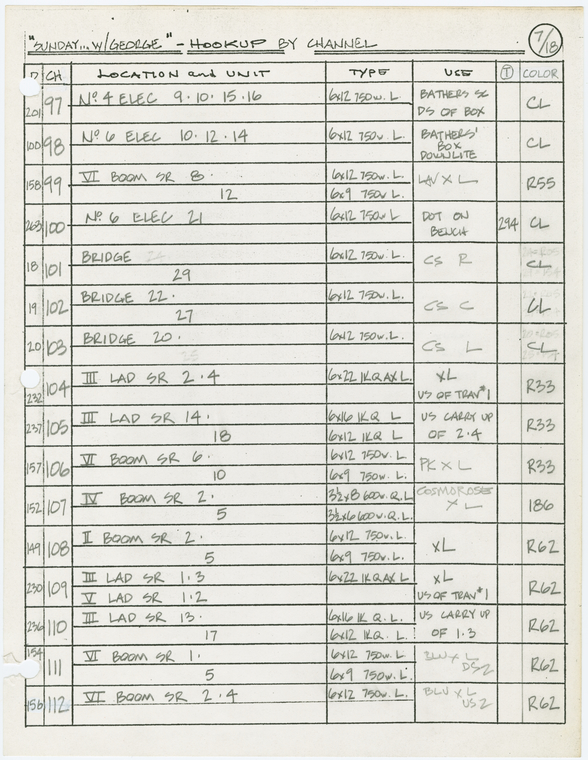 "SUNDAY... W/GEORGE" - HOOKUP BY CHANNEL 7/18
D CH LOCATION and UNIT TYPE USE T COLOR
201 97 Nº 4 ELEC 9·10·15·16 6x12 750w. L. BATHERS SC CL
DS OF BOX
100 98 Nº 6 ELEC 10·12·14 6x12 750w. L. BATHERS' CL
BOX
DOWNLITE
158 99 VI BOOM SR 8· 6x12 750w. L. LAV X L R55
12 6x9 750w. L.
263 100 Nº 6 ELEC 21 6x12 750w. L DOT ON 294 CL
BENCH
18 101 BRIDGE 6x12 750w. L. CS R CL
29
19 102 BRIDGE 22· 6x12 750w. L. CS C CL
27
20 103 BRIDGE 20· 6x12 750w. L. CS L CL
232 104 III LAD SR 2·4 6x22 1KQ AX L. XL R33
US OF TRAV #1
237 105 III LAD SR 14· 6x16 1KQ L US CARRY UP R33
18 6x12 1KQ L OF 2·4
157 106 VI BOOM SR 6· 6x12 750w. L. PK X L R33
10 6x9 750w. L.
152 107 IV BOOM SR 2· 3½x8 600w. Q. L COSMOROSE 186
5 3½x6 600w. Q. L. X L
149 108 II BOOM SR 2· 6x12 750w. L. XL R62
5 6x9 750w. L.
230 109 III LAD SR 1·3 6x22 1KQ AX L XL R62
V LAD SR 1·2 US OF TRAV #1
236 110 III LAD SR 13· 6x16 1K Q. L. US CARRY UP R62
17 6x12 1KQ. L OF 1·3
154 111 VI BOOM SR 1· 6x12 750w. L. BLU X L R62
5 6x9 750w. L. DS2
156 112 VI BOOM SR 2·4 6x12 750w. L. BLU X L R62
US2